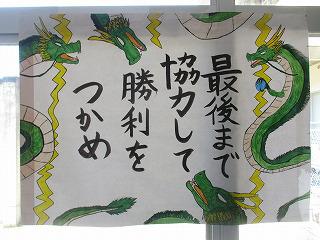 最後まで
協力して
勝利を
つかめ